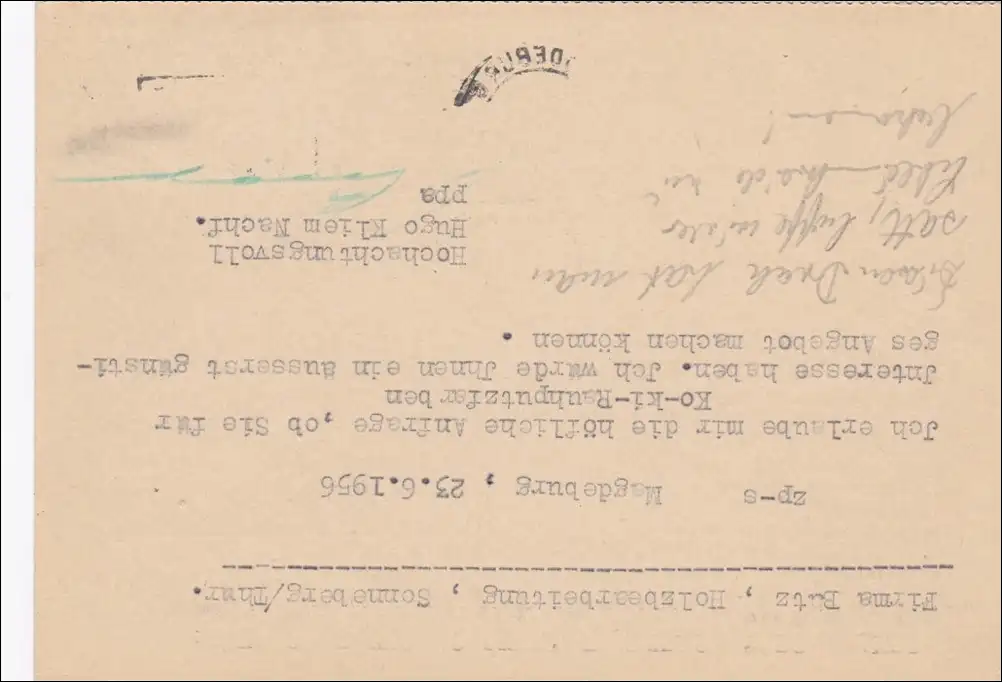 Firma Butz , Holzbearbeitung , Sonneberg/Thür.
zp-s Magdeburg , 23.6.1956
Jch erlaube mir die höfliche Anfrage ,ob Sie für
Ko-ki-Rauhputzfarben
Jnteresse haben. Jch würde Jhnen ein äusserst günsti-
ges Angebot machen können .
Hochachtungsvoll
Hugo Kliem Nachf.
ppa
Dreck hat man
satt,
DEBUR